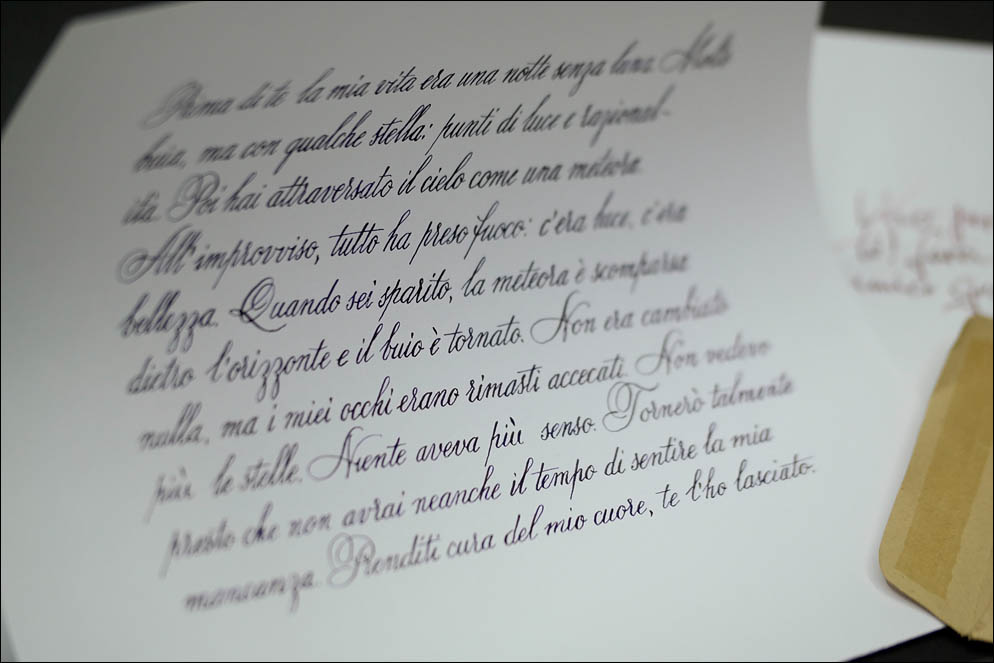 Prima di te la mia vita era una notte senza luna. Molto
buia, ma con qualche stella: punti di luce e razional-
ità. Poi hai attraversato il cielo come una meteora.
All'improvviso, tutto ha preso fuoco: c'era luce, c'era
bellezza. Quando sei sparito, la meteora è scomparsa
dietro l'orizzonte e il buio è tornato. Non era cambiato
nulla, ma i miei occhi erano rimasti accecati. Non vedevo
più le stelle. Niente aveva più senso. Tornerò talmente
presto che non avrai neanche il tempo di sentire la mia
mancanza. Prenditi cura del mio cuore, te l'ho lasciato.